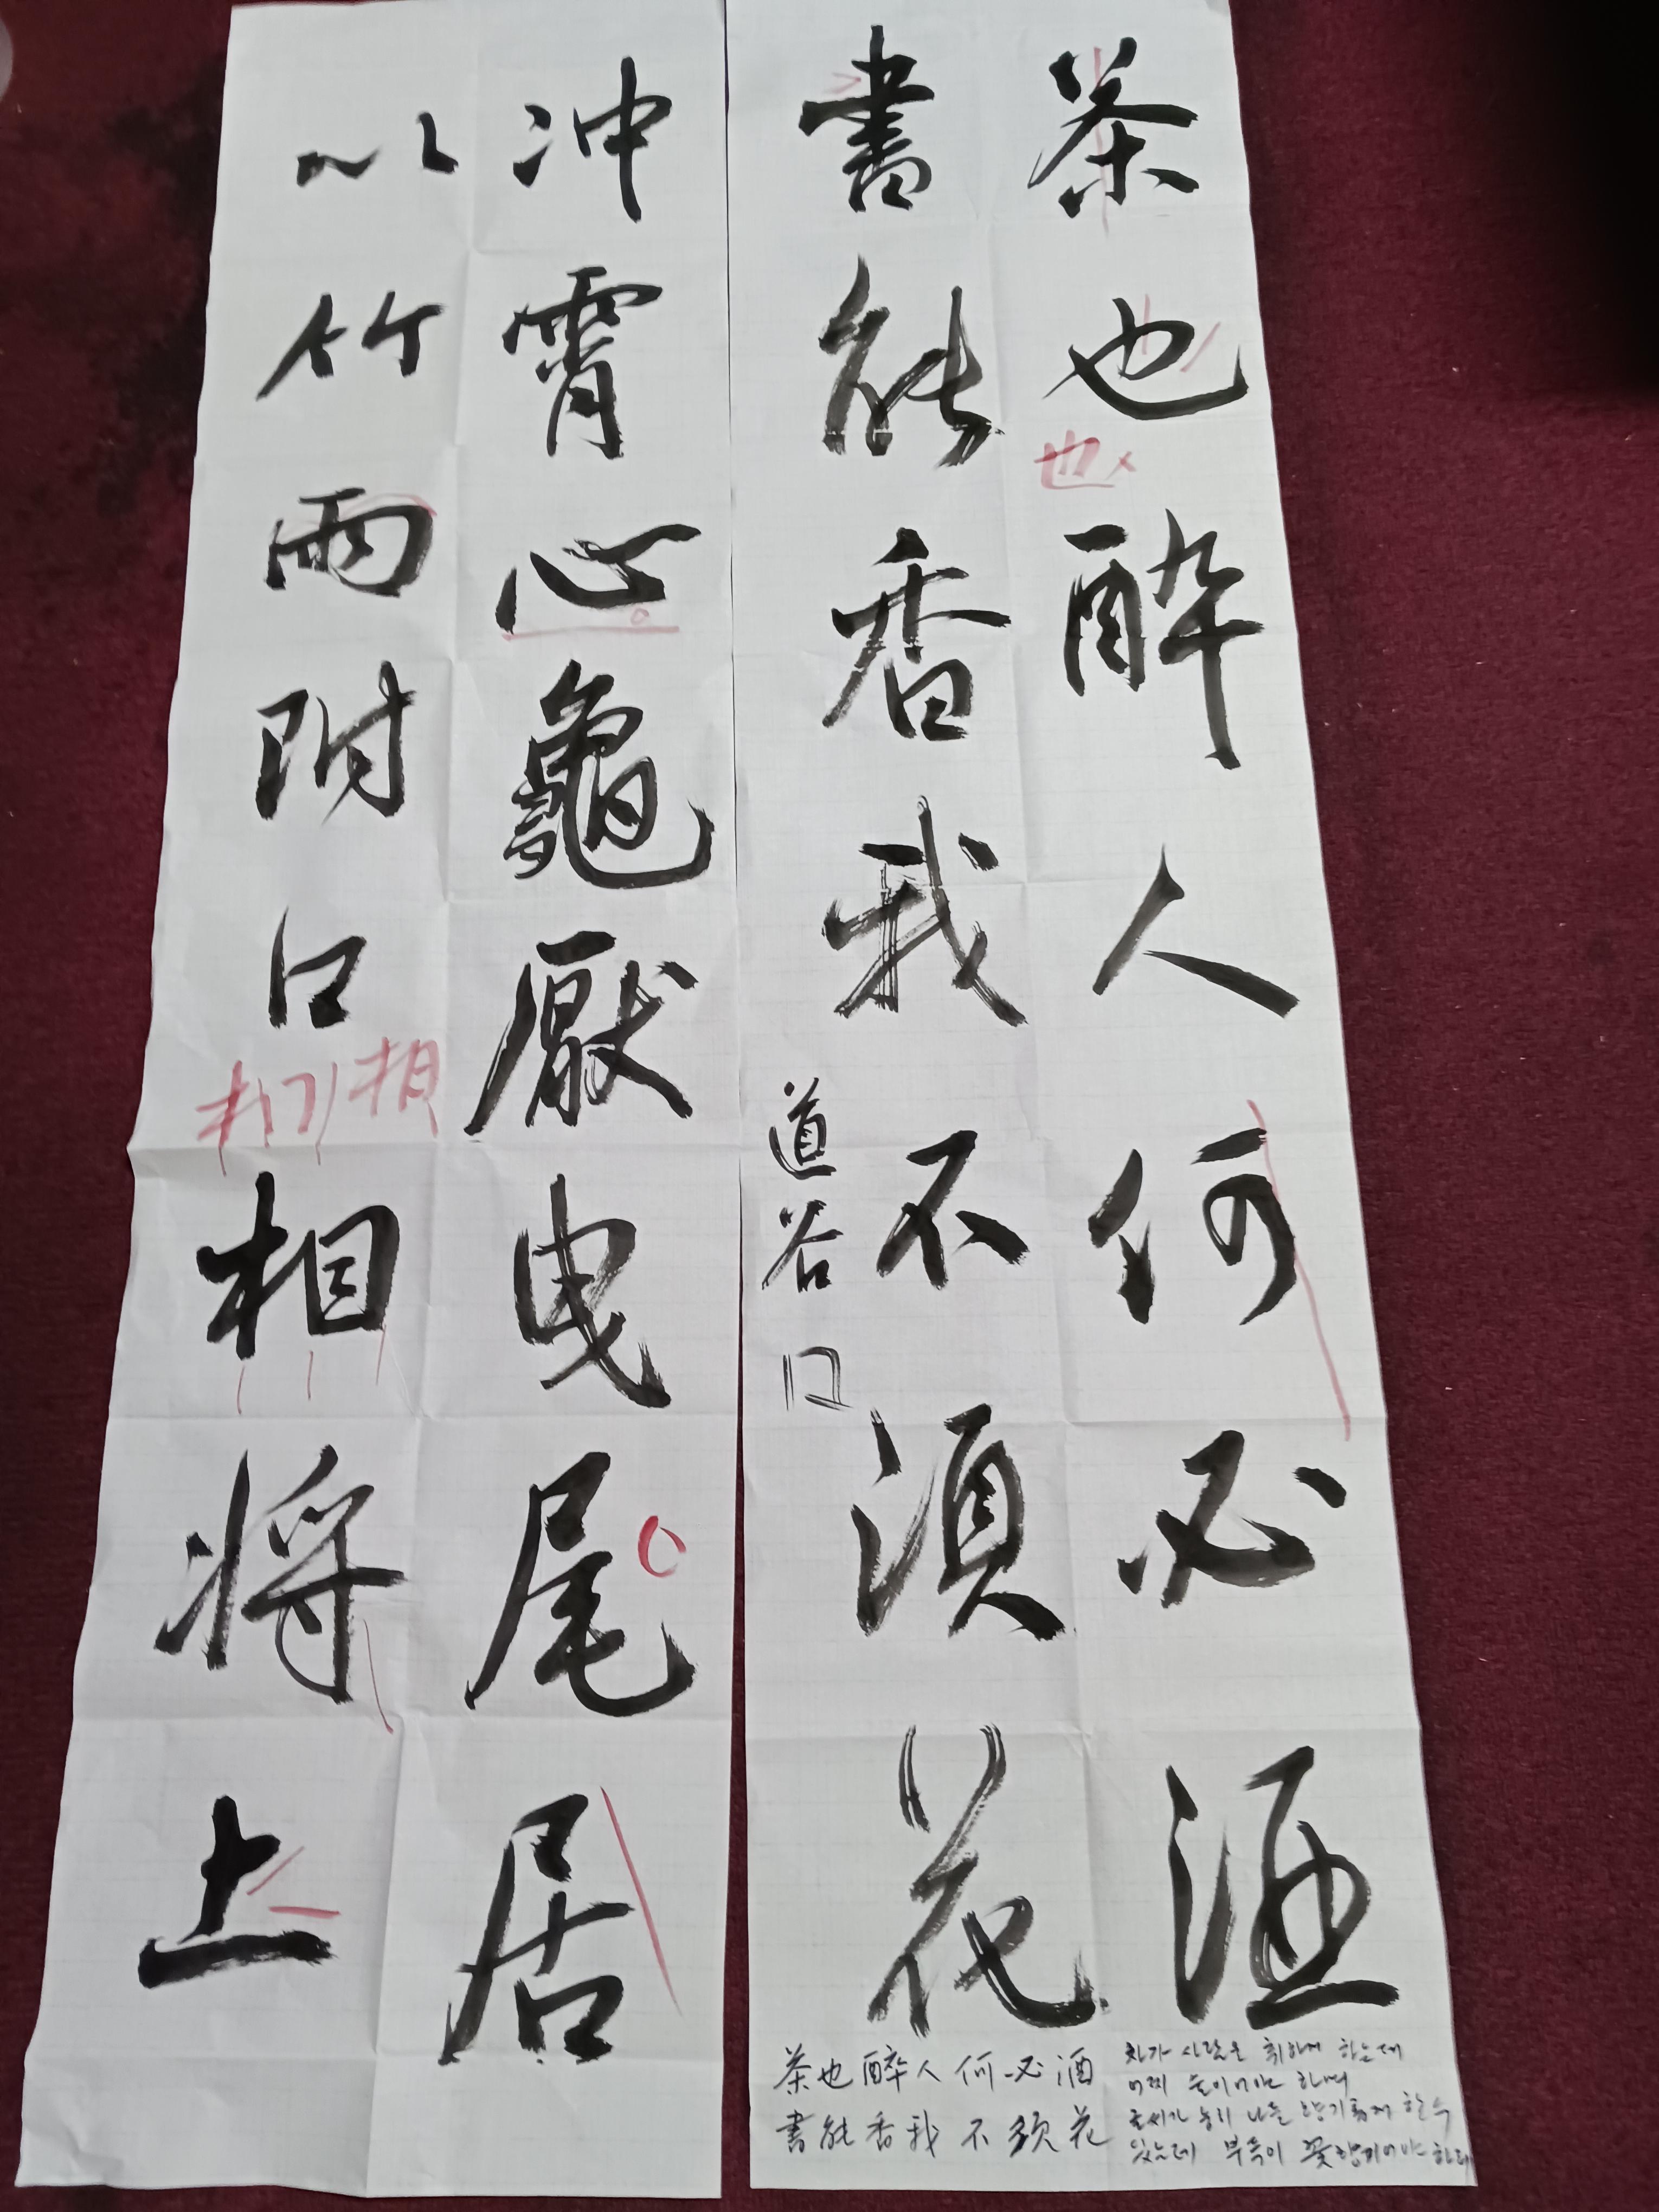 茶也醉人何必酒
書能香我不須花
道谷口
茶也醉人何必酒
書能香我不須花
차가 사람을 취하게 하는데
어찌 술이어야 하며
글씨가 능히 나를 향기롭게 할 수
있는데 부득이 꽃향기어야 하리
沖霄心龜厭曳尾居
以竹雨附口相將上
也
相